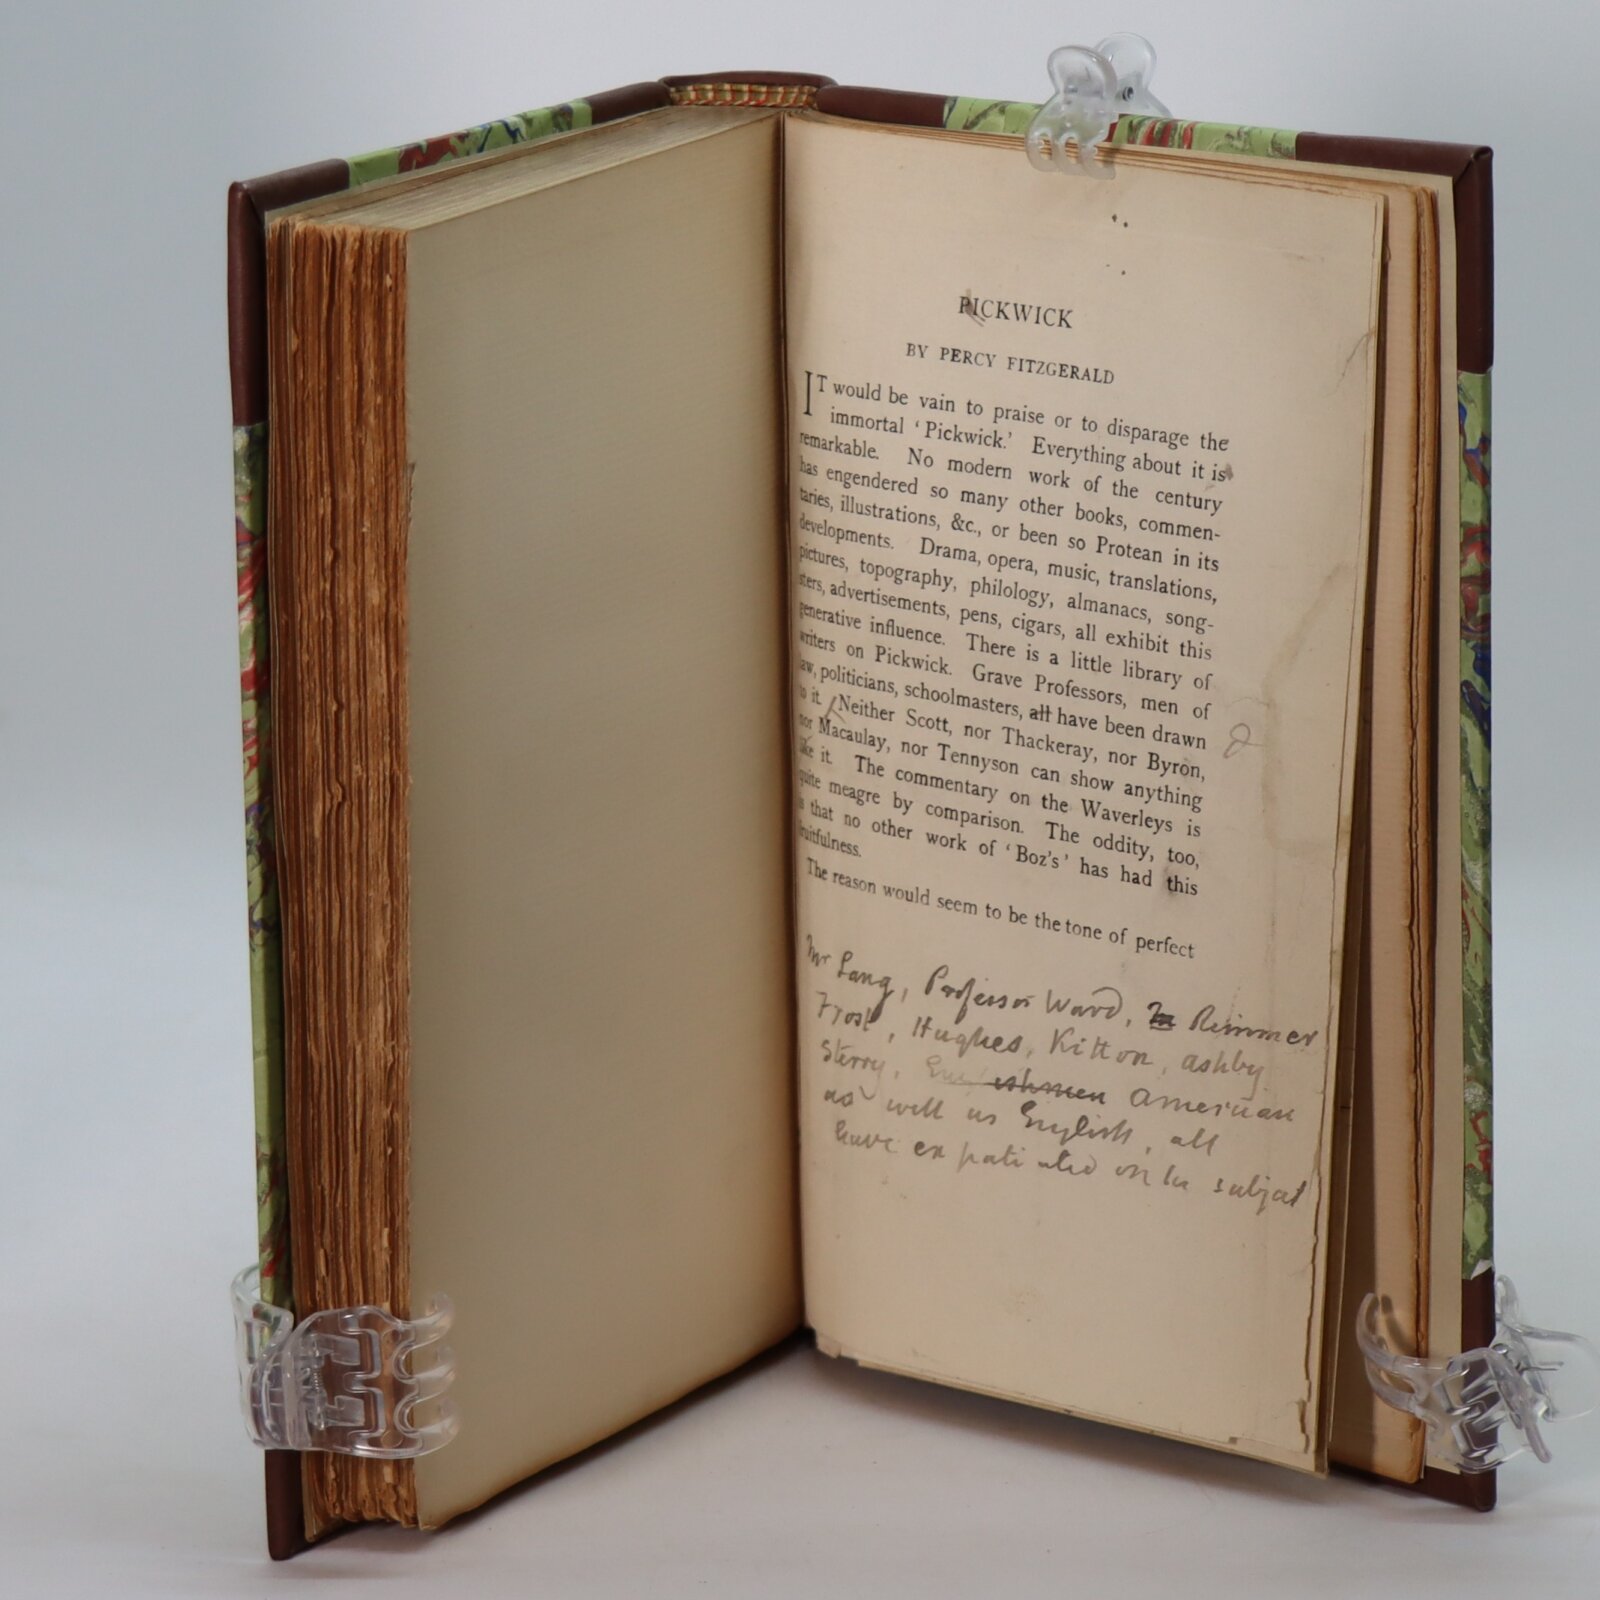 PICKWICK
BY PERCY FITZGERALD
IT would be vain to praise or to disparage the
immortal ‘Pickwick.’ Everything about it is
remarkable. No modern work of the century
has engendered so many other books, commen-
taries, illustrations, &c., or been so Protean in its
developments. Drama, opera, music, translations,
pictures, topography, philology, almanacs, song-
sters, advertisements, pens, cigars, all exhibit this
generative influence. There is a little library of
writers on Pickwick. Grave Professors, men of
law, politicians, schoolmasters, all have been drawn
to it. Neither Scott, nor Thackeray, nor Byron,
nor Macaulay, nor Tennyson can show anything
like it. The commentary on the Waverleys is
quite meagre by comparison. The oddity, too,
is that no other work of ‘Boz's’ has had this
fruitfulness.
The reason would seem to be the tone of perfect
Mr Lang, Professor Ward, Rimmer
Frost, Hughes, Kitton, ashby
Sterry, American
as well as English, all
have expatiated on the subject